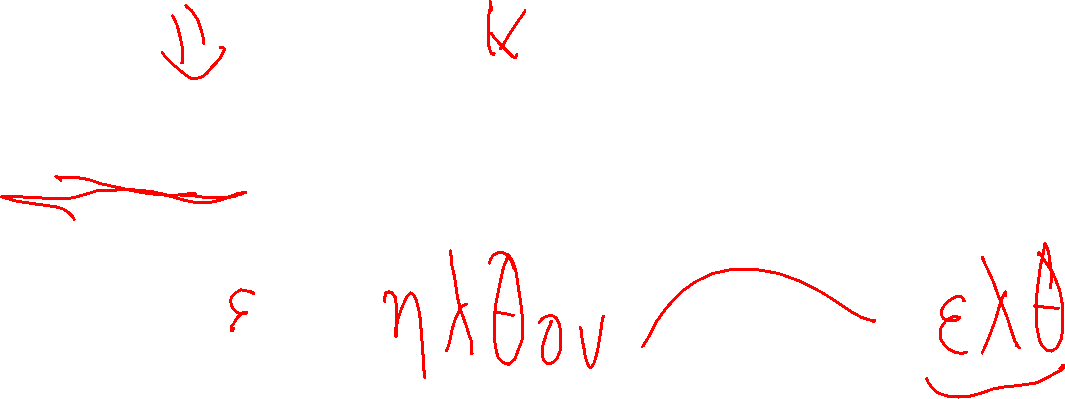 κ
ε ηλθον ελθ